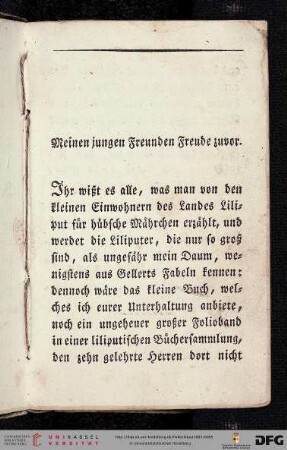 Meinen jungen Freunden Freude zuvor.
Ihr wißt es alle, was man von den
kleinen Einwohnern des Landes Lili-
put für hübsche Mährchen erzählt, und
werdet die Liliputer, die nur so groß
sind, als ungefähr mein Daum, we-
nigstens aus Gellerts Fabeln kennen:
dennoch wäre das kleine Buch, wel-
ches ich eurer Unterhaltung anbiete,
noch ein ungeheuer großer Folioband
in einer liliputischen Büchersammlung,
den zehn gelehrte Herren dort nicht
UNIKASSEL
VERSITÄT
DFG